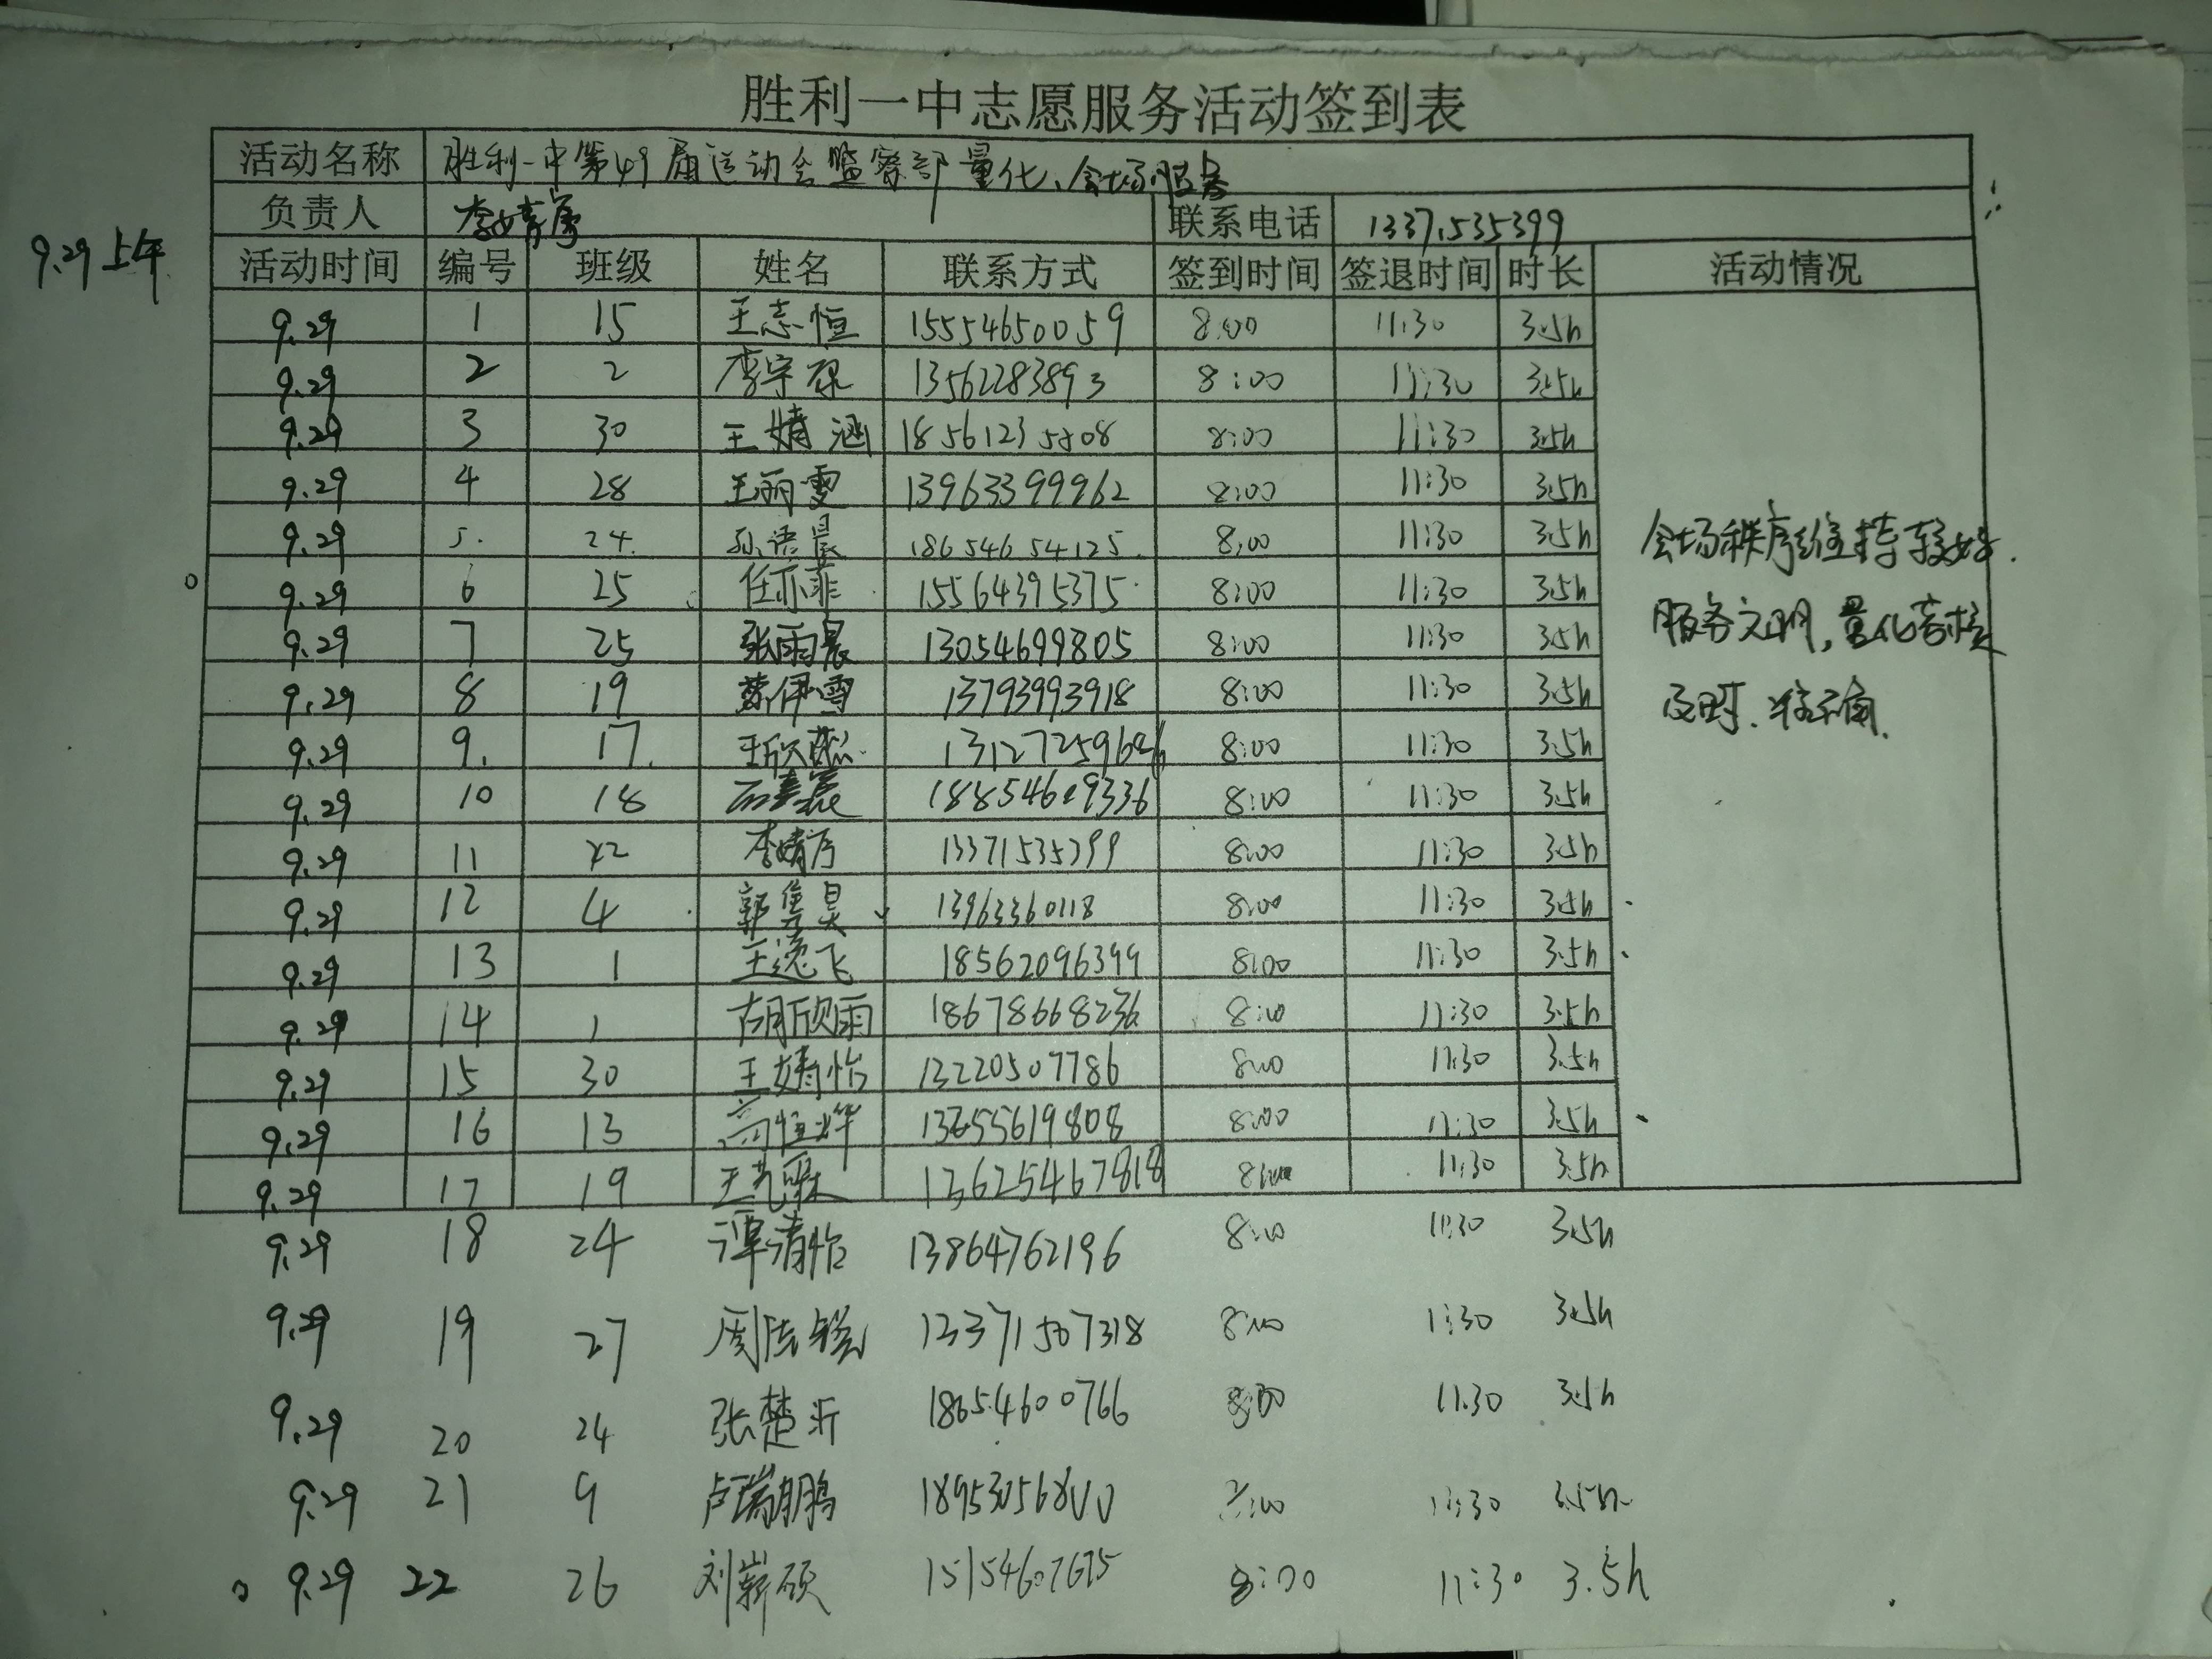 胜利一中志愿服务活动签到表
活动名称 胜利一中第49届运动会监察部量化、会场服务
负责人 李婧 联系电话 13371535399
9.29上午
活动时间 编号 班级 姓名 联系方式 签到时间 签退时间 时长 活动情况
9.29 1 15 王志恒 15554650059 8:00 11:30 3.5h
9.29 2 2 李宇禄 13562283893 8:00 11:30 3.5h
9.29 3 30 王婧涵 8:00 11:30 3.5h
9.29 4 28 王丽雯 13963399962 8:00 11:30 3.5h
9.29 5. 24. 孙语晨 18654654125. 8:00 11:30 3.5h
9.29 6 25 任亦菲 15564395375 8:00 11:30 3.5h
9.29 7 25 张雨晨 13054699805 8:00 11:30 3.5h
9.29 8 19 伊雪 13793993918 8:00 11:30 3.5h
9.29 9. 17. 8:00 11:30 3.5h
9.29 10 18 18854609336 8:00 11:30 3.5h
9.29 11 22 李婧 13371535399 8:00 11:30 3.5h
9.29 12 4 郭隽昊 13963360118 8:00 11:30 3.5h
9.29 13 1 王逸飞 18562096399 8:00 11:30 3.5h
9.29 14 1 胡欣雨 18678668236 8:00 11:30 3.5h
9.29 15 30 王婧怡 13220507786 8:00 11:30 3.5h
9.29 16 13 高恒烨 8:00 11:30 3.5h
9.29 17 19 王艺 13625467818 8:00 11:30 3.5h
9.29 18 24 谭清怡 13864762196 8:00 11:30 3.5h
9.29 19 27 周 13371507318 8:00 11:30 3.5h
9.29 20 24 张楚沂 18654600766 8:00 11:30 3.5h
9.29 21 9 卢瑞鹏 18953056800 8:00 11:30 3.5h
9.29 22 26 刘薪硕 15154607675 8:00 11:30 3.5h
会场秩序维持较好.
服务文明,量化考核
及时、准确.